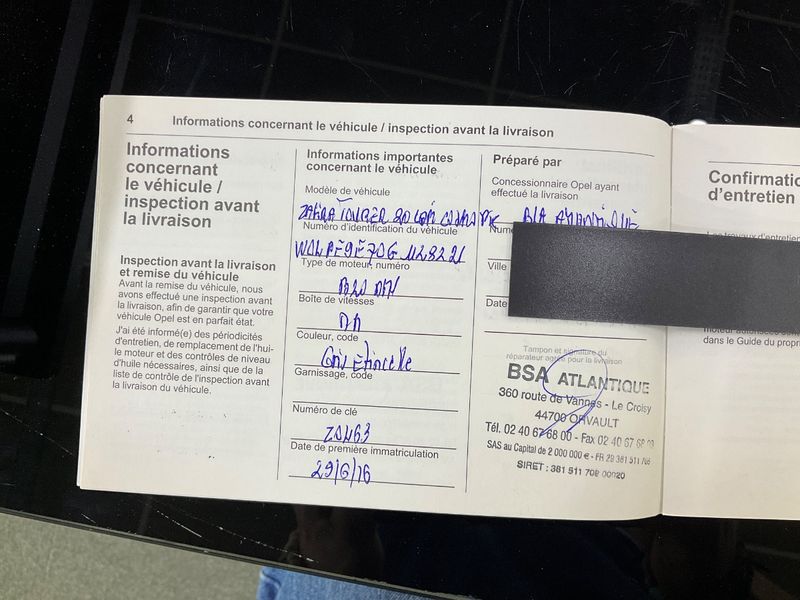 4
Informations concernant le véhicule / inspection avant la livraison
Informations
concernant
le véhicule /
inspection avant
la livraison
Inspection avant la livraison
et remise du véhicule
Avant la remise du véhicule, nous
avons effectué une inspection avant
la livraison, afin de garantir que votre
véhicule Opel est en parfait état.
J'ai été informé(e) des périodicités
d'entretien, de remplacement de l'hui-
le moteur et des contrôles de niveau
d'huile nécessaires, ainsi que de la
liste de contrôle de l'inspection avant
la livraison du véhicule.
Informations importantes
concernant le véhicule
Modèle de véhicule
ZAFIRA TOURER 20
Numéro d'identification du véhicule
Type de moteur, numéro
Boîte de vitesses
Couleur, code
Gris Etincelle
Garnissage, code
Numéro de clé
Date de première immatriculation
29/6/16
Préparé par
Concessionnaire Opel ayant
effectué la livraison
BSA ATLANTIQUE
Ville
Date
Tampon et signature du
réparateur agréé pour la livraison
BSA ATLANTIQUE
360 route de Vannes - Le Croisy
44700 ORVAULT
Tél. 02 40 67 68 00 - Fax 02 40 67 68
SAS au Capital de 2 000 000 € - FR 29 381 511
SIRET : 381 511 706 00020
Confirmation
d'entretien
dans le Guide du propri